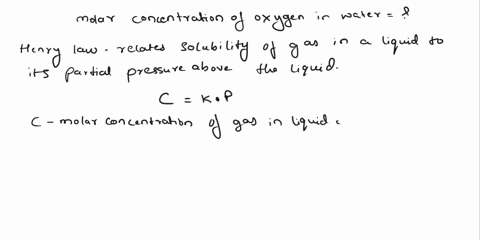 molar concentration of oxygen in water = ?
Henry law - relates solubility of gas in a liquid to
its partial pressure above the liquid.
C = K • P
C - molar concentration of gas in liquid.